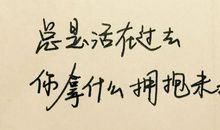 总是活在过去
你拿什么拥抱未